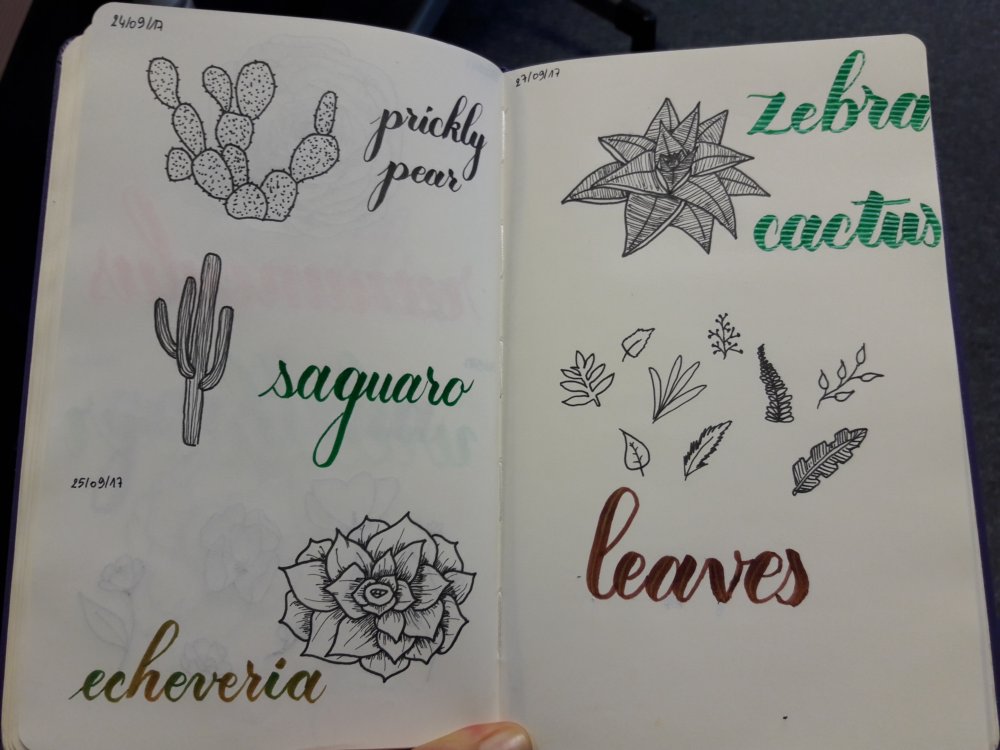 24/09/17
prickly
pear
saguaro
25/09/17
echeveria
27/09/17
zebra
cactus
leaves